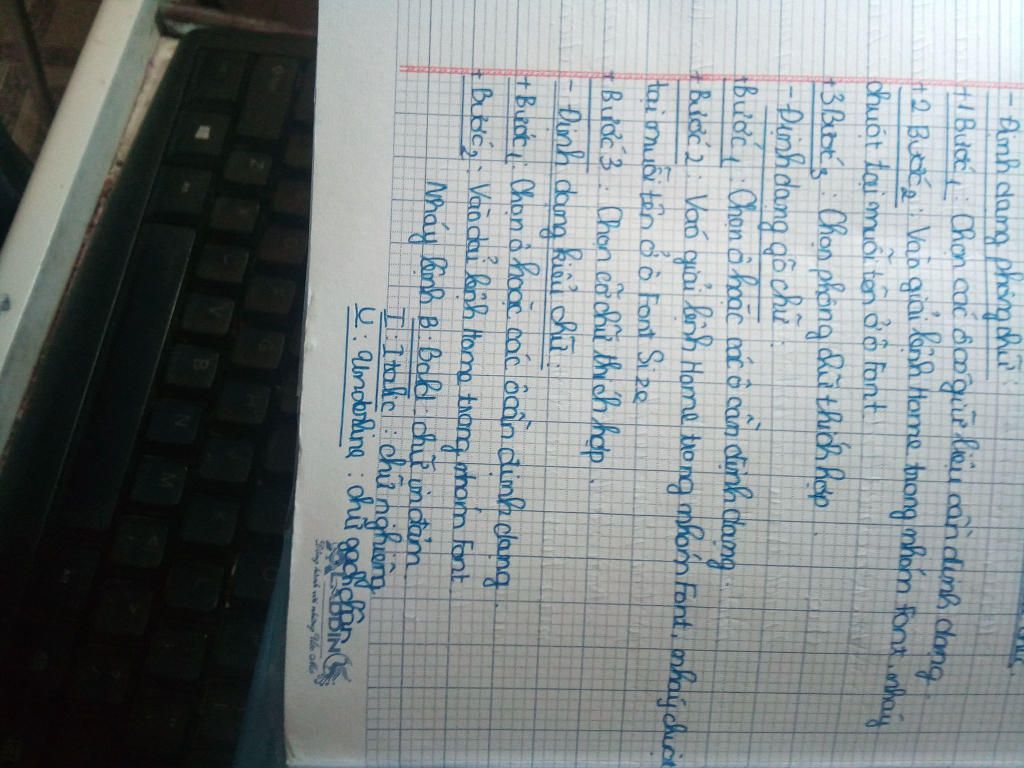 - Định dạng phông chữ:
+ 1 Bước 1: Chọn các ô có dữ liệu cần định dạng
+ 2 Bước 2: Vào giải lệnh Home trong nhóm Font, nháy
chuột tại mũi tên ở ô Font
+ 3 Bước 3: Chọn phông chữ thích hợp
- Định dạng cỡ chữ:
+ Bước 1: Chọn ô hoặc các ô cần định dạng.
+ Bước 2: Vào giải lệnh Home trong nhóm Font, nháy chuột
tại mũi tên ở ô Font Size
+ Bước 3: Chọn cỡ chữ thích hợp.
- Định dạng kiểu chữ:
+ Bước 1: Chọn ô hoặc các ô cần định dạng.
+ Bước 2: Vào dải lệnh Home trong nhóm Font
Nháy lệnh B: Bold: chữ in đậm
I: Italic: chữ nghiêng
U: Underline: chữ gạch chân
Z
C
V
B
N
M